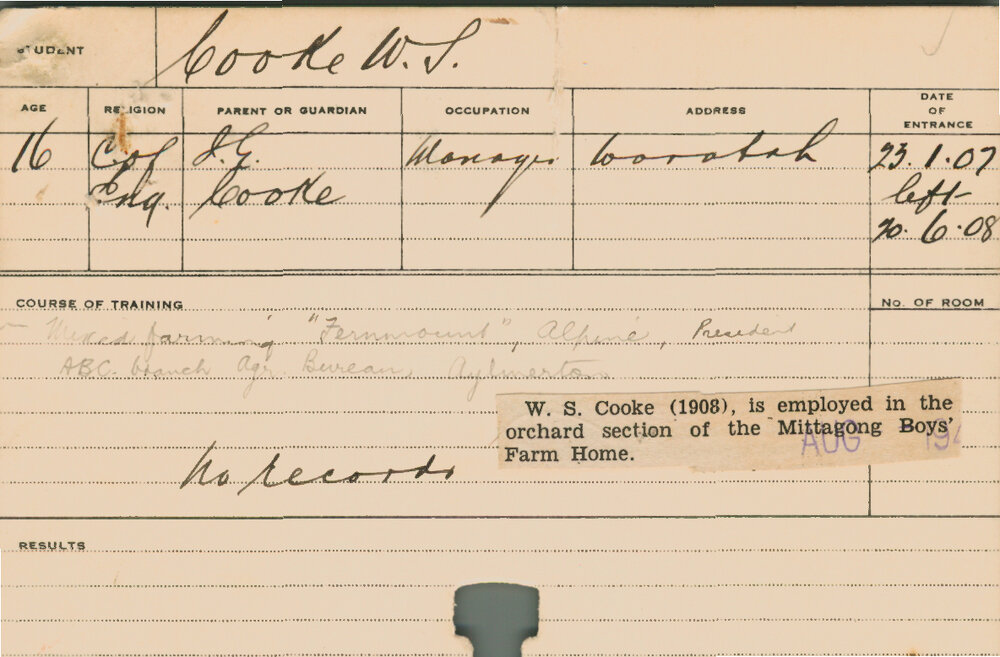 STUDENT Cooke W. S.
AGE RELIGION PARENT OR GUARDIAN OCCUPATION ADDRESS DATE OF ENTRANCE
16 C of J. G. Manager Waratah 23.1.07
Eng. Cooke left
20.6.08
COURSE OF TRAINING No. OF ROOM
Mixed farming "Fernmount", Alpine, President
ABC branch Agr. Bureau, Aylmerton
W. S. Cooke (1908), is employed in the
orchard section of the Mittagong Boys'
Farm Home.
AUG 194
No records
RESULTS